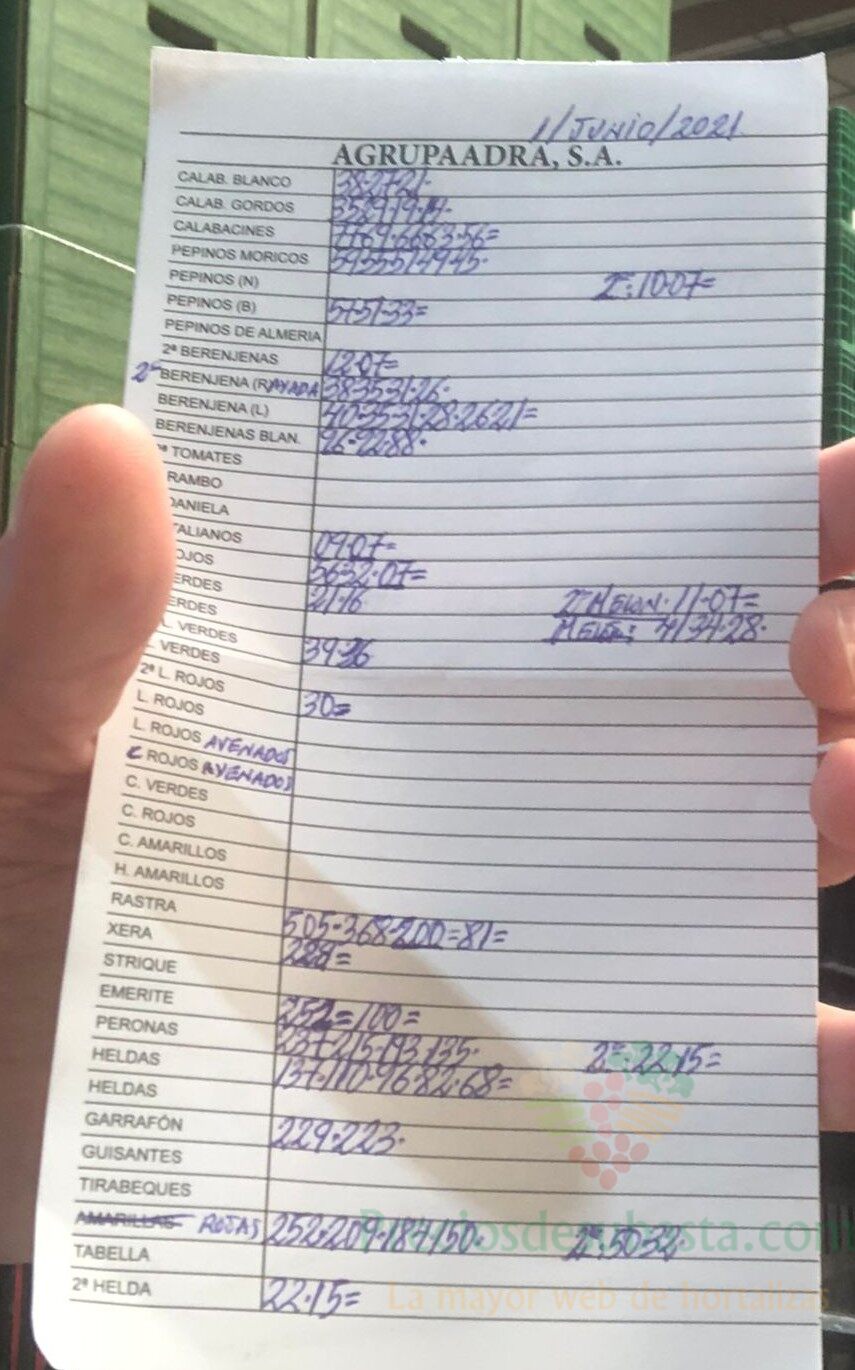 1/JUNIO/2021
AGRUPAADRA, S.A.
CALAB. BLANCO 38·27·21·
CALAB. GORDOS 35·29·19·14·
CALABACINES 77·69·66·63·56=
PEPINOS MORICOS 59·55·51·49·45·
PEPINOS (N) 2ª:10·07=
PEPINOS (B) 57·51·33=
PEPINOS DE ALMERIA
2ª BERENJENAS 12·07=
2ª BERENJENA (RAYADA 38·35·31·26·
BERENJENA (L) 40·35·31·28·26·21=
BERENJENAS BLAN. 96·92·88·
TOMATES
RAMBO
DANIELA
TALIANOS 09·07=
OJOS 36·32·07=
ERDES 21·16
ERDES 2ª MELON·11·07=
L. VERDES MELON: 41·34·28·
VERDES 39·36
2ª L. ROJOS
L. ROJOS 30=
L. ROJOS AVENADOS
C ROJOS AVENADOS
C. VERDES
C. ROJOS
C. AMARILLOS
H. AMARILLOS
RASTRA
XERA 505·368·200=81=
STRIQUE
EMERITE 252=100=
PERONAS 237·215·193·135· 2ª:22·15=
HELDAS 137·110·96·82·68=
HELDAS
GARRAFÓN 229·223·
GUISANTES
TIRABEQUES
AMARILLAS ROJAS 252·209·184·150· 2ª:50·32·
TABELLA
2ª HELDA 22·15=
La mayor web de hortalizas